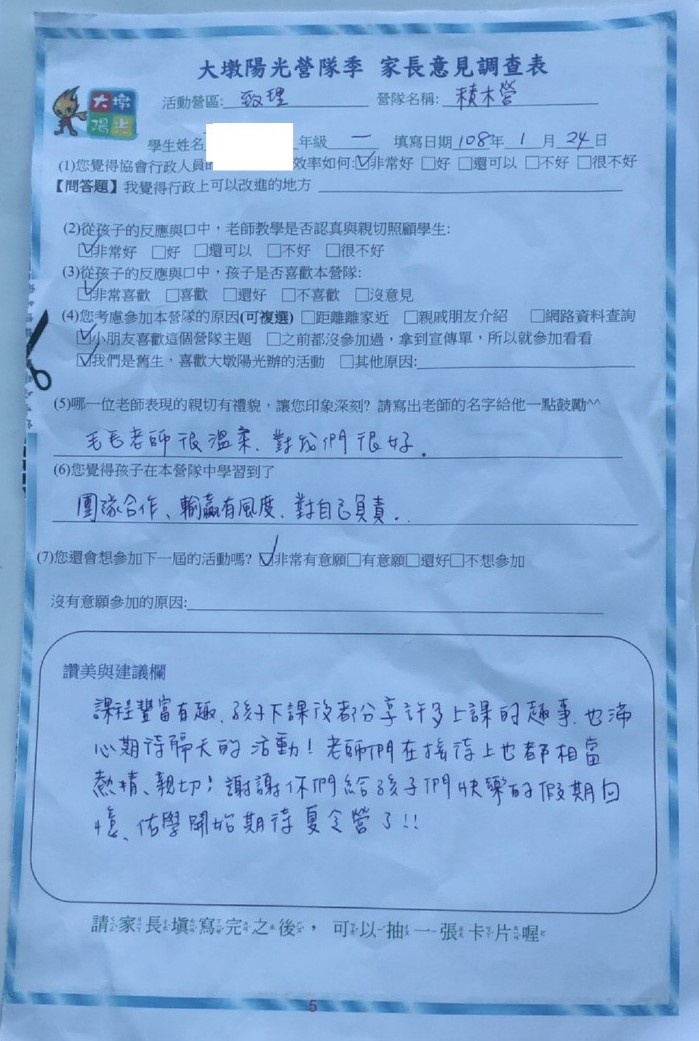 大墩陽光營隊季 家長意見調查表
大墩
陽光
活動營區: 致理 營隊名稱: 積木營
學生姓名 年級 一 填寫日期 108年 1 月 24 日
(1)您覺得協會行政人員 效率如何:☑非常好 □好 □還可以 □不好 □很不好
【問答題】我覺得行政上可以改進的地方
(2)從孩子的反應與口中，老師教學是否認真與親切照顧學生:
☑非常好 □好 □還可以 □不好 □很不好
(3)從孩子的反應與口中，孩子是否喜歡本營隊:
☑非常喜歡 □喜歡 □還好 □不喜歡 □沒意見
(4)您考慮參加本營隊的原因(可複選) □距離離家近 □親戚朋友介紹 □網路資料查詢
☑小朋友喜歡這個營隊主題 □之前都沒參加過，拿到宣傳單，所以就參加看看
☑我們是舊生，喜歡大墩陽光辦的活動 □其他原因:
(5)哪一位老師表現的親切有禮貌，讓您印象深刻? 請寫出老師的名字給他一點鼓勵^^
毛毛老師很溫柔、對我們很好。
(6)您覺得孩子在本營隊中學習到了
團隊合作、輸贏有風度、對自己負責。
(7)您還會想參加下一屆的活動嗎? ☑非常有意願□有意願□還好□不想參加
沒有意願參加的原因:
讚美與建議欄
課程豐富有趣、孩子下課後都分享許多上課的趣事、也滿
心期待隔天的活動！老師們在接待上也都相當
熱情、親切；謝謝你們給孩子們快樂的假期回
憶、佑學開始期待夏令營了!!
請家長填寫完之後，可以抽一張卡片喔
5